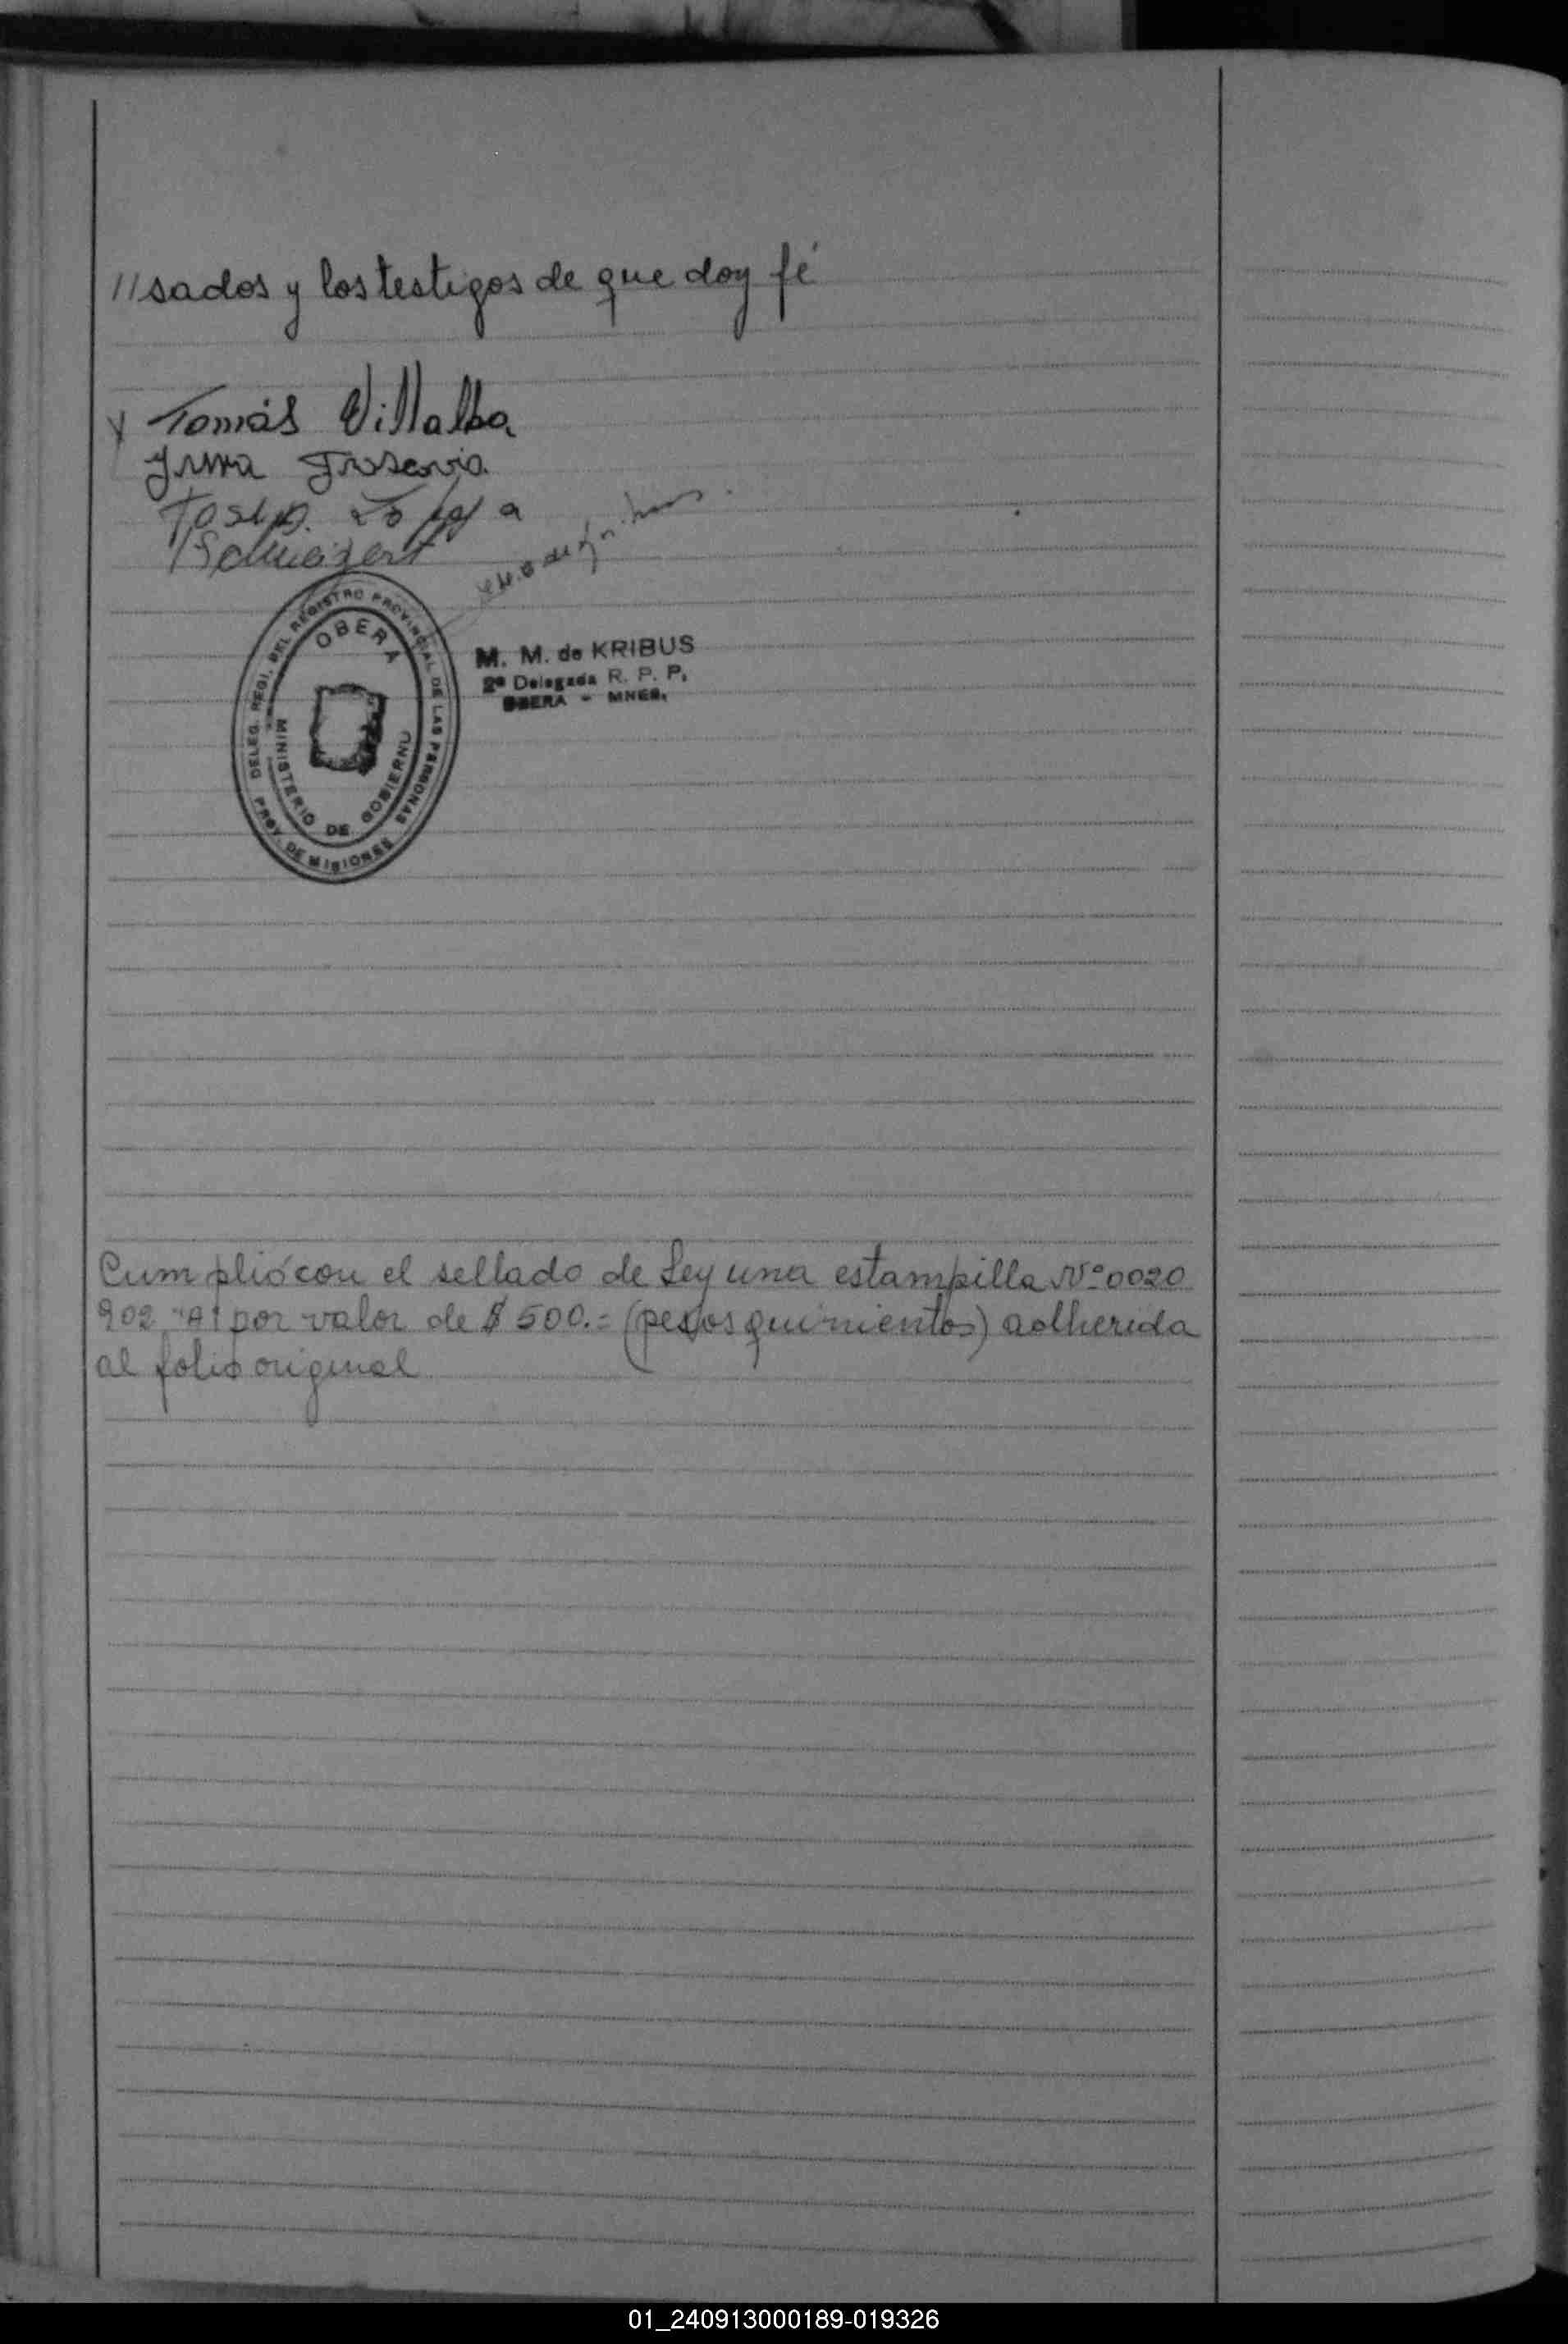 //sados y los testigos de que doy fé
Tomás Villalba
Schweizert
OBERA
DELEG. REGI. DEL REGISTRO PROVINCIAL DE LAS PERSONAS
MINISTERIO DE GOBIERNO
PROV. DE MISIONES
M. M. de KRIBUS
2ª Delegada R. P. P.
OBERA - MNES.
Cumplió con el sellado de Ley una estampilla Nº 0020
902 "A" por valor de $ 500.= (pesos quinientos) adherida
al folio original
01_240913000189-019326